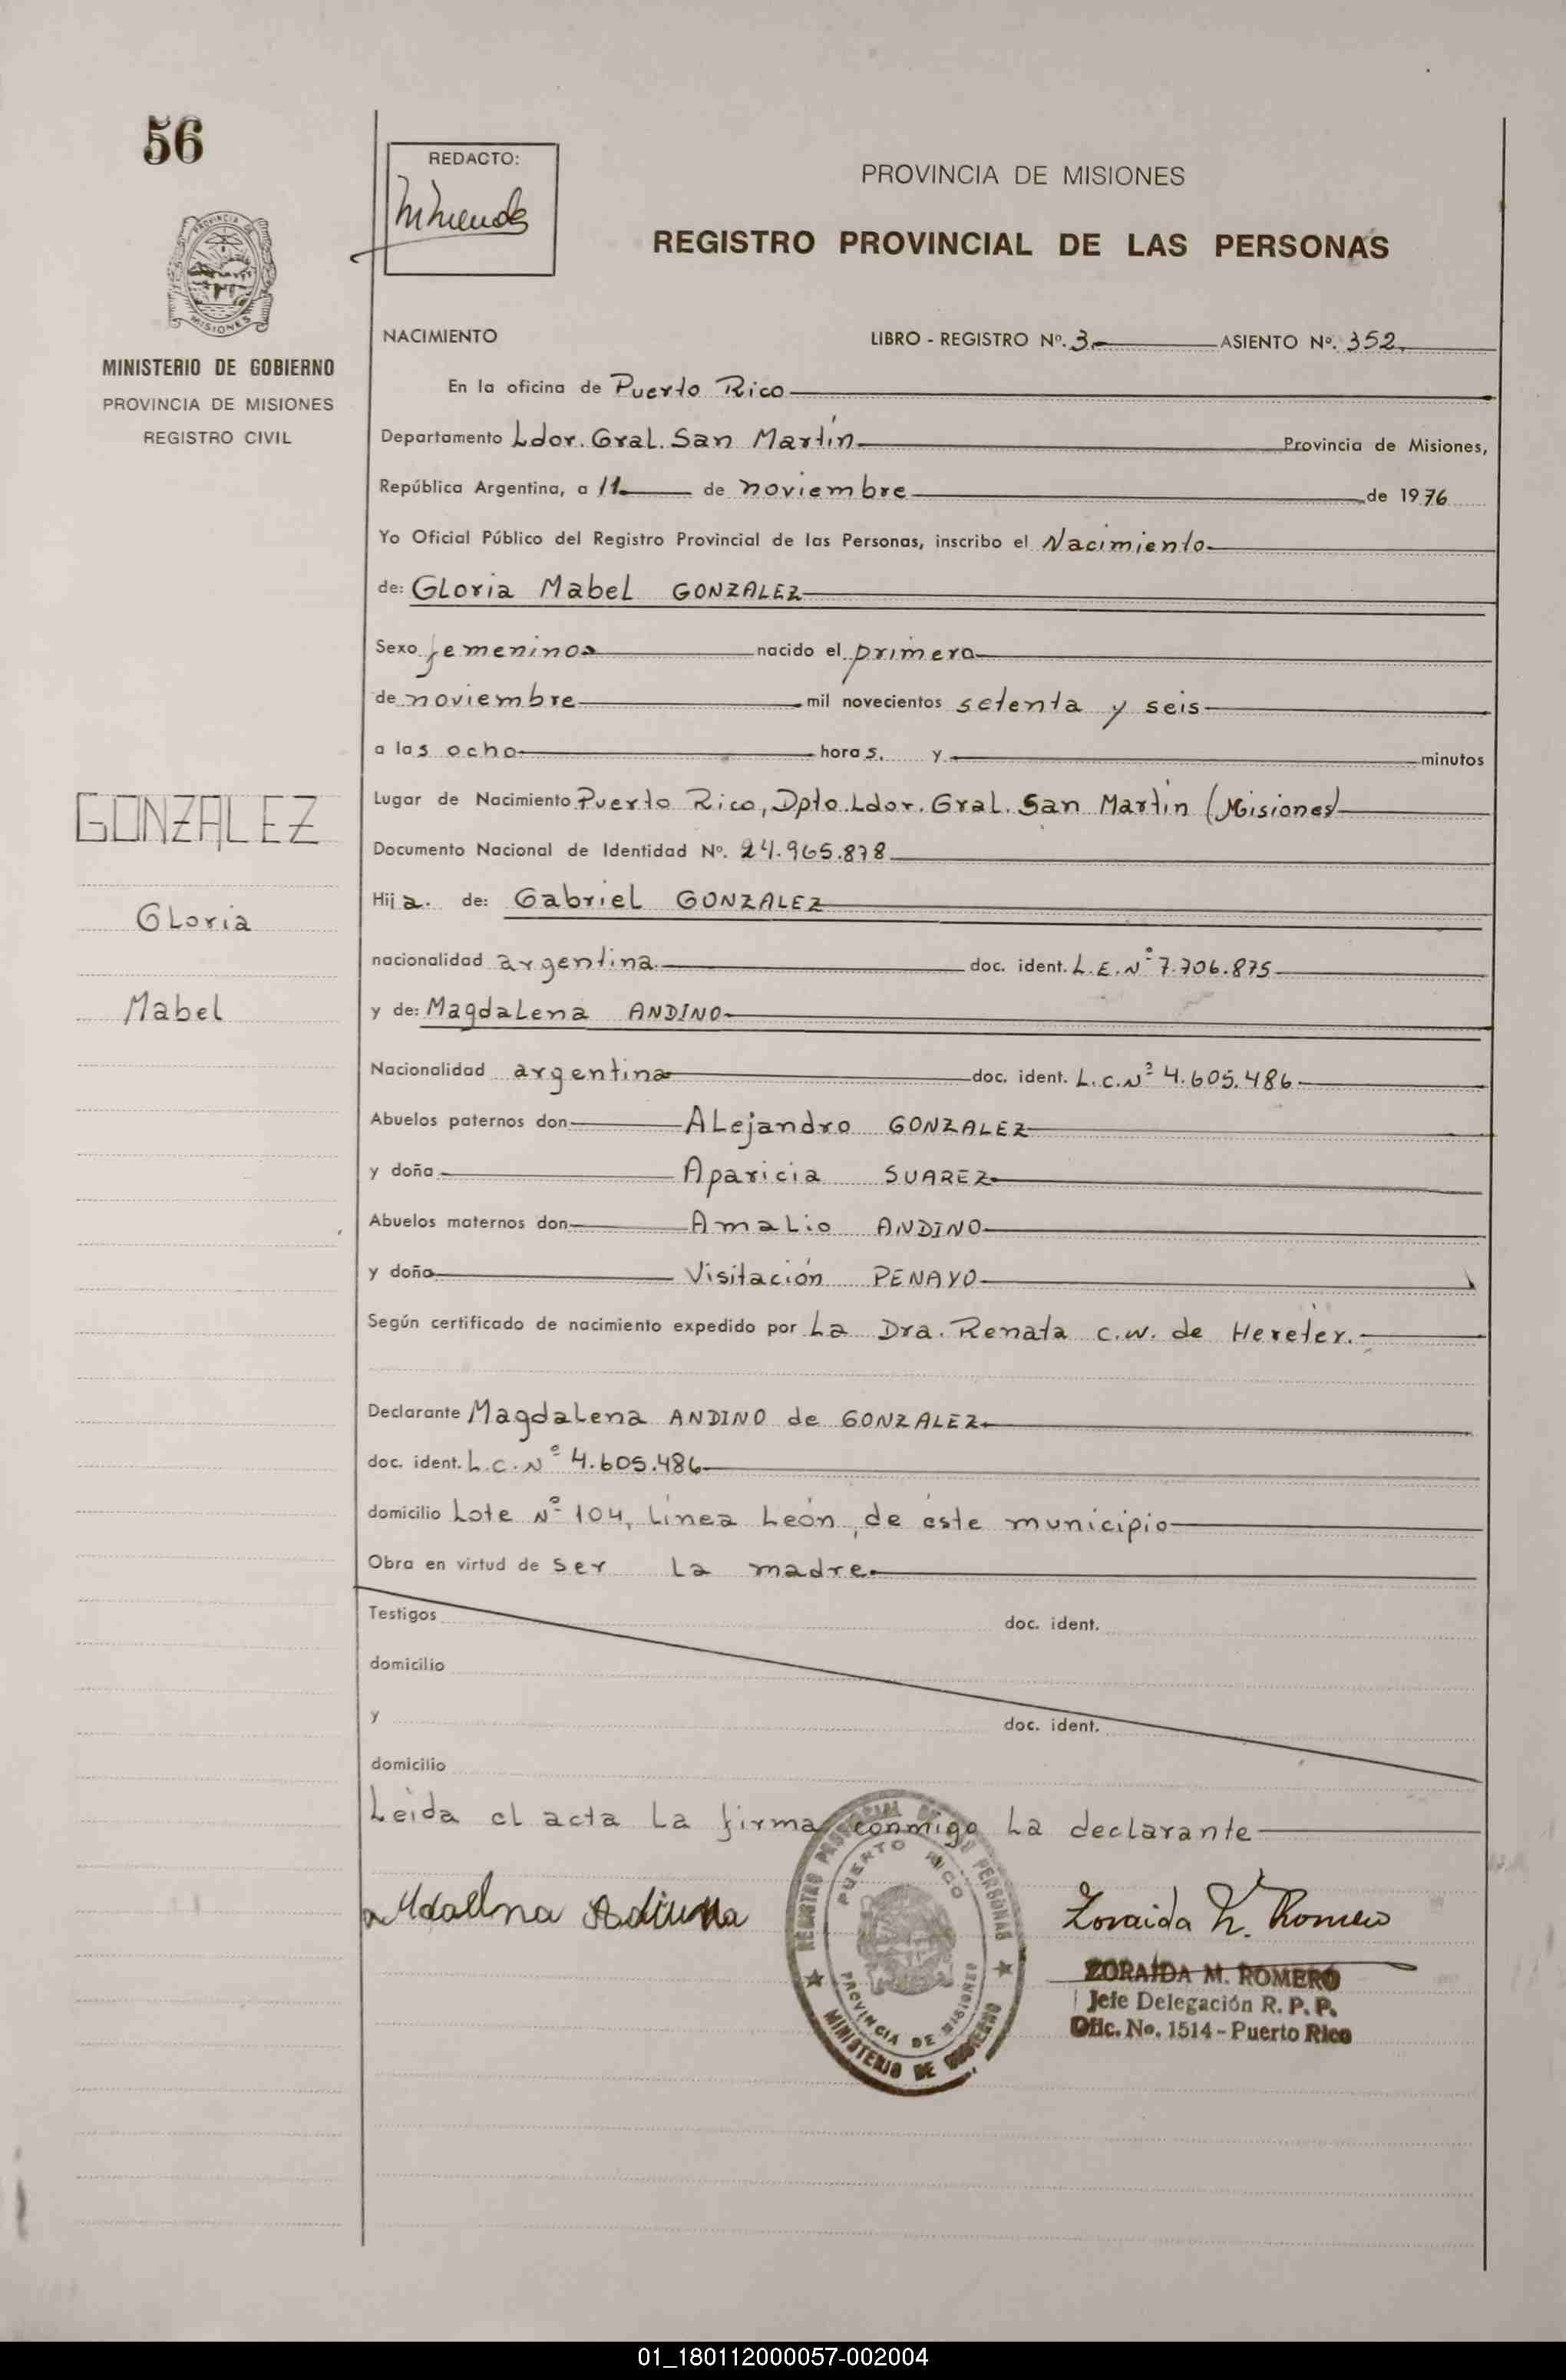 56
REDACTO:
PROVINCIA DE MISIONES
REGISTRO PROVINCIAL DE LAS PERSONAS
PROVINCIA DE
MISIONES
MINISTERIO DE GOBIERNO
PROVINCIA DE MISIONES
REGISTRO CIVIL
NACIMIENTO LIBRO - REGISTRO Nº. 3 ASIENTO Nº. 352
En la oficina de Puerto Rico
Departamento Ldor. Gral. San Martín Provincia de Misiones,
República Argentina, a 11 de noviembre de 1976
Yo Oficial Público del Registro Provincial de las Personas, inscribo el Nacimiento
de: Gloria Mabel GONZALEZ
Sexo femenino nacido el primero
de noviembre mil novecientos setenta y seis
a las ocho horas. y minutos
GONZALEZ
Gloria
Mabel
Lugar de Nacimiento Puerto Rico, Dpto. Ldor. Gral. San Martín (Misiones)
Documento Nacional de Identidad Nº. 24.965.878
Hija. de: Gabriel GONZALEZ
nacionalidad argentina doc. ident. L.E. Nº 7.706.875
y de: Magdalena ANDINO
Nacionalidad argentina doc. ident. L.C. Nº 4.605.486
Abuelos paternos don Alejandro GONZALEZ
y doña Aparicia SUAREZ
Abuelos maternos don Amalio ANDINO
y doña Visitación PENAYO
Según certificado de nacimiento expedido por La Dra. Renata C.W. de Hereter.
Declarante Magdalena ANDINO de GONZALEZ
doc. ident. L.C. Nº 4.605.486
domicilio Lote Nº 104, Línea León, de éste municipio
Obra en virtud de ser la madre
Testigos doc. ident.
domicilio
y doc. ident.
domicilio
Leída el acta la firma conmigo la declarante
REGISTRO PROVINCIAL DE LAS PERSONAS
PUERTO RICO
PROVINCIA DE MISIONES
MINISTERIO DE GOBIERNO
Zoraida M. Romero
ZORAIDA M. ROMERO
Jefe Delegación R. P. P.
Ofic. No. 1514 - Puerto Rico
01_180112000057-002004